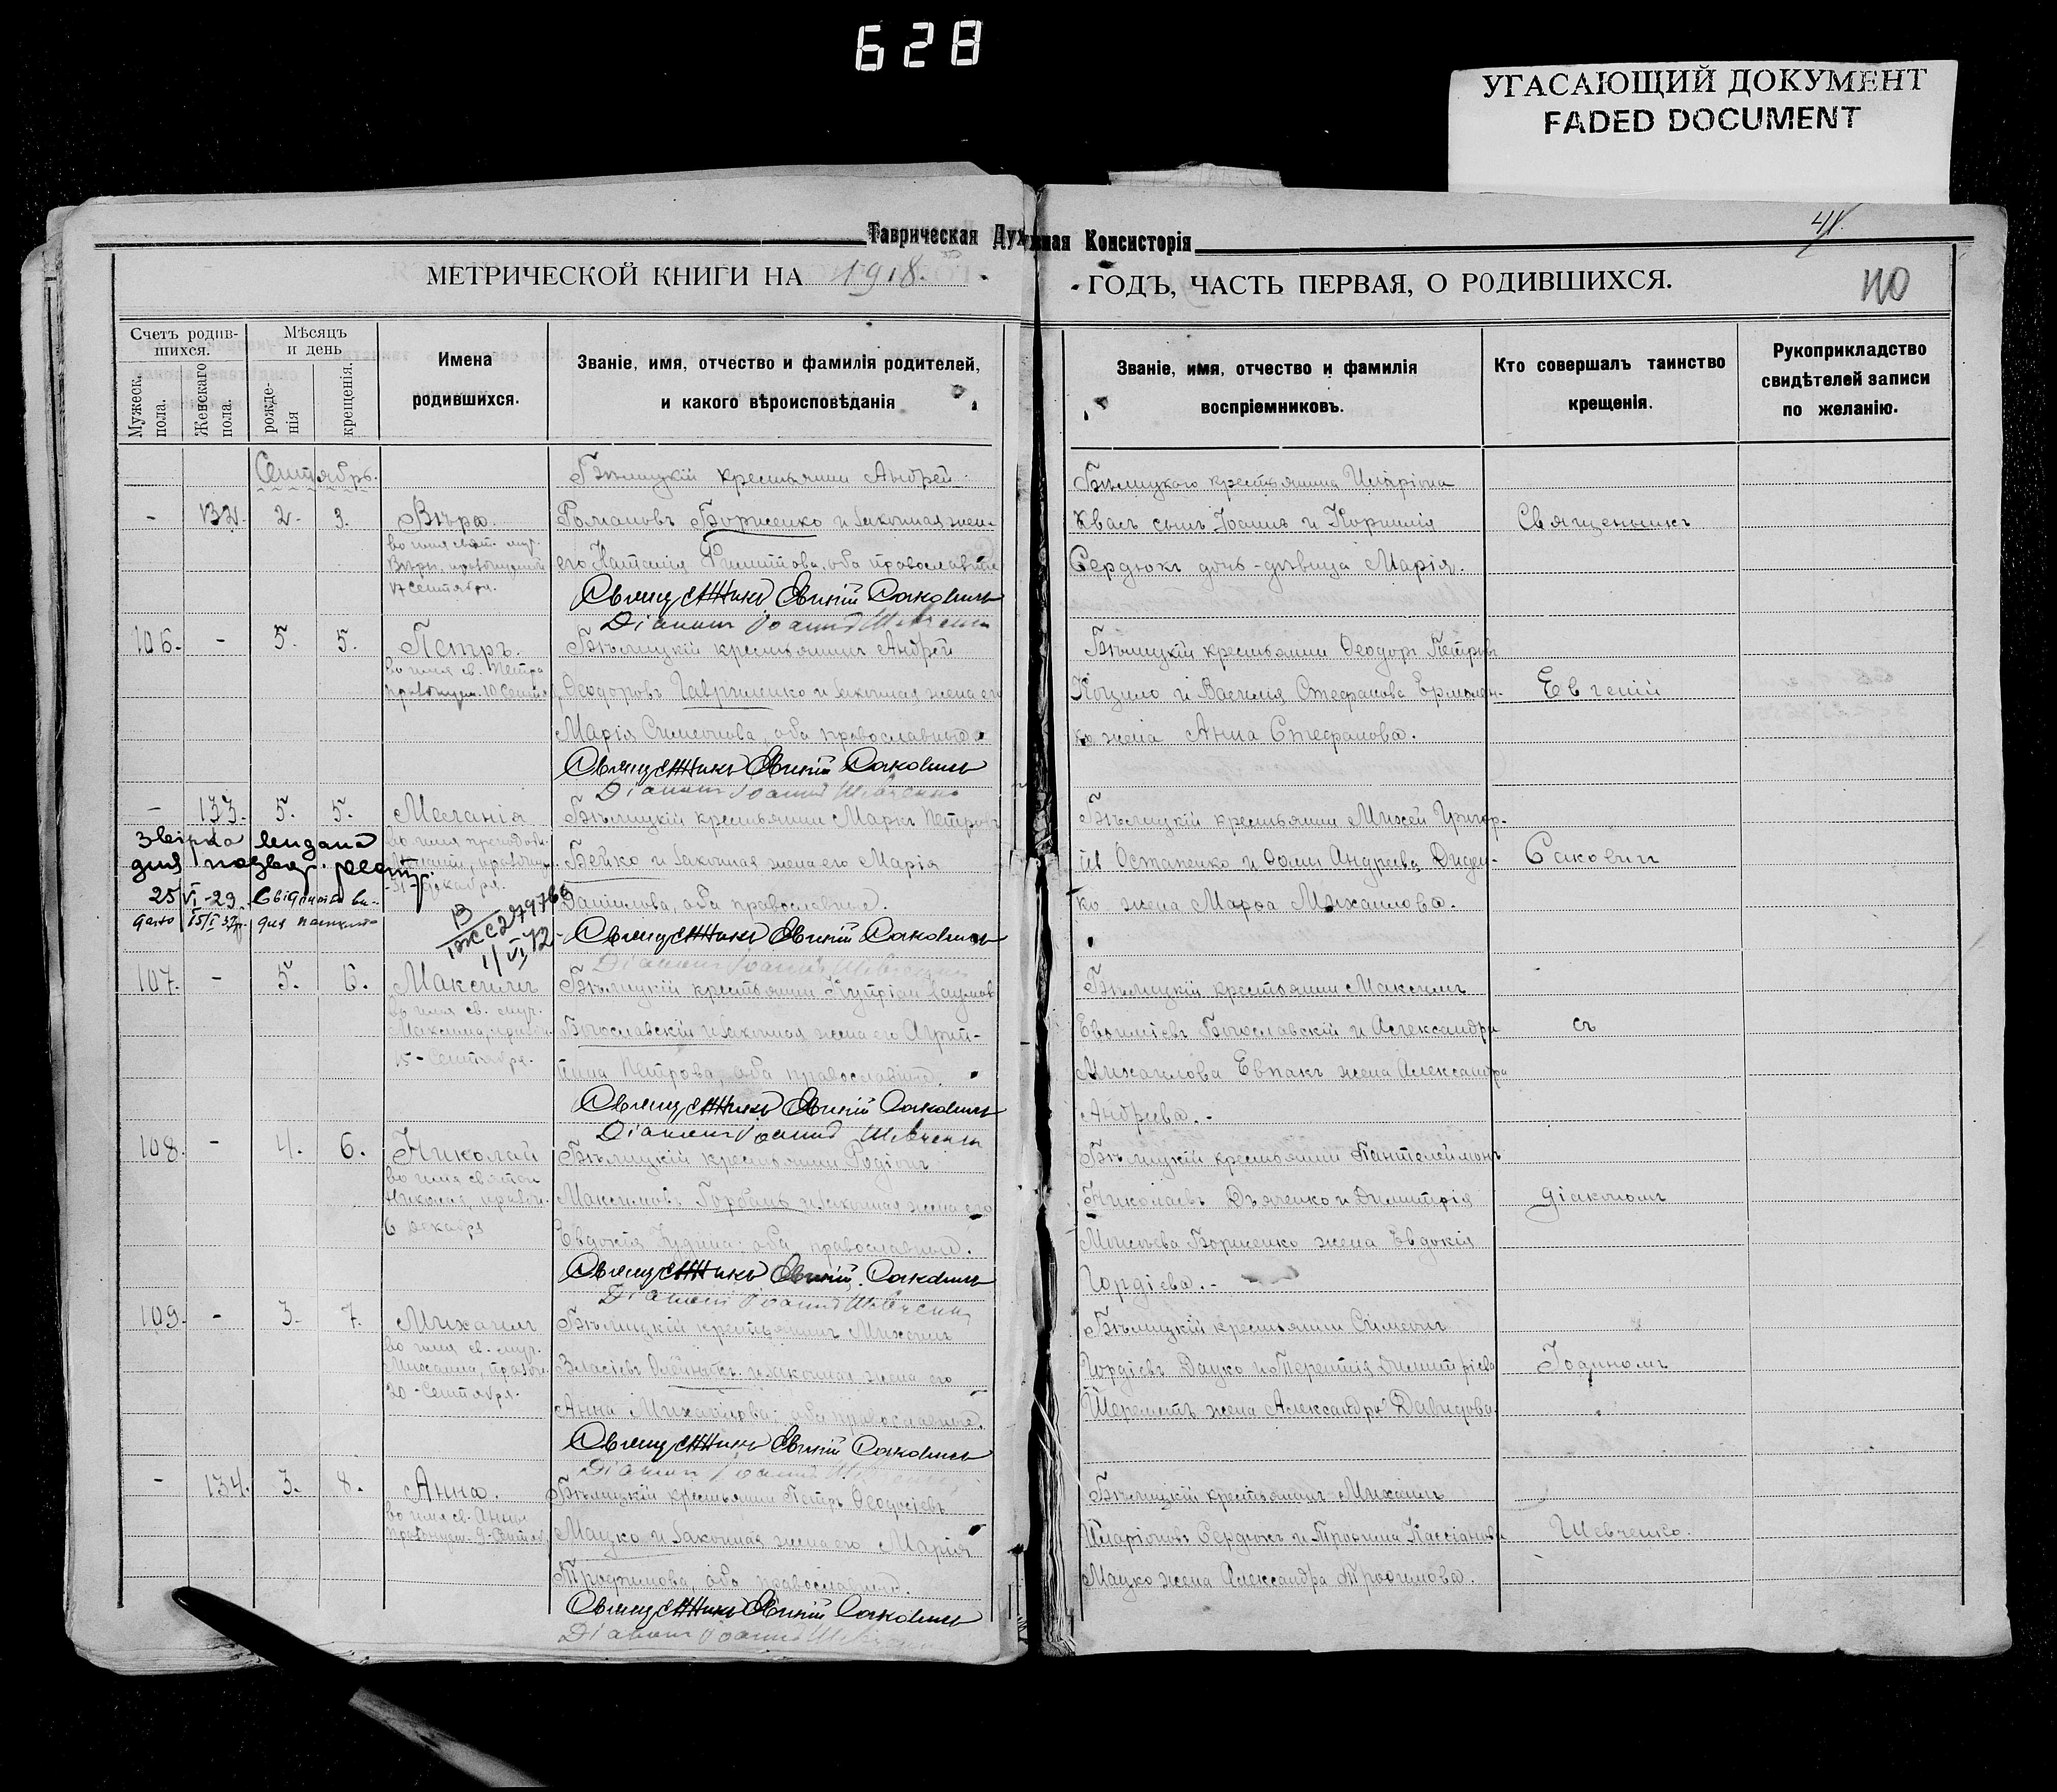 628
УГАСАЮЩИЙ ДОКУМЕНТ
FADED DOCUMENT
41.
Таврическая Духовная Консисторія
МЕТРИЧЕСКОЙ КНИГИ НА 1918.
ГОДЪ, ЧАСТЬ ПЕРВАЯ, О РОДИВШИХСЯ.
110
Счетъ родив-
шихся.
Мужеск. пола.
Женскаго пола.
Мѣсяцъ
и день
рожде-
нія
крещенія.
Имена
родившихся.
Званіе, имя, отчество и фамилія родителей,
и какого вѣроисповѣданія
Званіе, имя, отчество и фамилія
воспріемниковъ.
Кто совершалъ таинство
крещенія.
Рукоприкладство
свидѣтелей записи
по желанію.
Сентябрь.
- 132. 2. 3. Вѣра.
во имя свят. муч.
Вѣры, праздницемой
17 Сентября.
Бѣлицкій крестьянинъ Андрей
Романовъ Борисенко и законная жен-
его Наталія Филиппова, оба православные
Священникъ Евгеній Саковичъ
Діаконъ Іоаннъ Шевченко
Бѣлицкаго крестьянина Иларіона
Квасъ сынъ Іоаннъ и Корнилія
Сердюкъ дочь-дѣвица Марія.
Священникъ
106. - 5. 5. Петръ.
во имя св. Петра
праздницем. 10 Сентяб
Бѣлицкій крестьянинъ Андрей
Ѳеодоровъ Гавриленко и законная жена его
Марія Симеонова, оба православные
Священникъ Евгеній Саковичъ
Діаконъ Іоаннъ Шевченко
Бѣлицкій крестьянинъ Ѳеодоръ Петровъ
Коцило и Василія Стефанова Ермолен-
ко жена Анна Стефанова.
Евгеній
- 133. 5. 5. Меланія
31 Декабря.
Звірка видана
для
25/VI-29. Свідоцтво ви-
дано 15/I 37р. для паспорта
Бѣлицкій крестьянинъ Маркъ Петровъ
Бейко и законная жена его Марія
Даніилова, оба православные.
Священникъ Евгеній Саковичъ
Діаконъ Іоаннъ Шевченко
Бѣлицкій крестьянинъ Михей Григор-
іев Остапенко и Ѳомы Андреева Диден-
ко жена Марѳа Михаилова.
Саковичъ
107. - 5. 6. Максимъ
во имя св. муч.
Максима, праздн.
15-Сентября.
Бѣлицкій крестьянинъ Кипріанъ Наумов
Богославскій и законная жена его Агрип-
пина Петрова, оба православные.
Священникъ Евгеній Саковичъ
Діаконъ Іоаннъ Шевченко
Бѣлицкій крестьянинъ Максимъ
Евѳиміевъ Богославскій и Александра
Михаилова Евпакъ жена Александра
Андреева.-
съ
108. - 4. 6. Николай
во имя святой
Николая, праздн.
6 декабря
Бѣлицкій крестьянинъ Родіонъ
Максимовъ Горбань и законная жена его
Евдокія Іудина оба православные.
Священникъ Евгеній Саковичъ
Діаконъ Іоаннъ Шевченко
Бѣлицкій крестьянинъ Пантелеймонъ
Николаевъ Дьяченко и Димитрія
Моисѣева Борисенко жена Евдокія
Гордіева.-
діакономъ
109. - 3. 7. Михаилъ
во имя св. муч.
Михаила, праздн.
20-Сентября.
Бѣлицкій крестьянинъ Михаилъ
Власіевъ Олейникъ и законная жена его
Анна Михайлова оба православные.
Священникъ Евгеній Саковичъ
Діаконъ Іоаннъ
Бѣлицкій крестьянинъ Симеонъ
Гордіевъ Дацко и Терентія Димитріева
Шереметъ жена Александра Давидова.
Іоанномъ
- 134. 3. 8. Анна.
во имя св. Анны
празднуем. 9-Сентяб.
Бѣлицкій крестьянинъ Петръ Ѳеодосіевъ
Мацко и законная жена его Марія
Трофимова, оба православные.
Священникъ Евгеній Саковичъ
Діаконъ Іоаннъ Шевченко
Бѣлицкій крестьянинъ Михаилъ
Иларіоновъ Сердюкъ и Трофима Кассіанова
Мацко жена Александра Трофимова.
Шевченко.